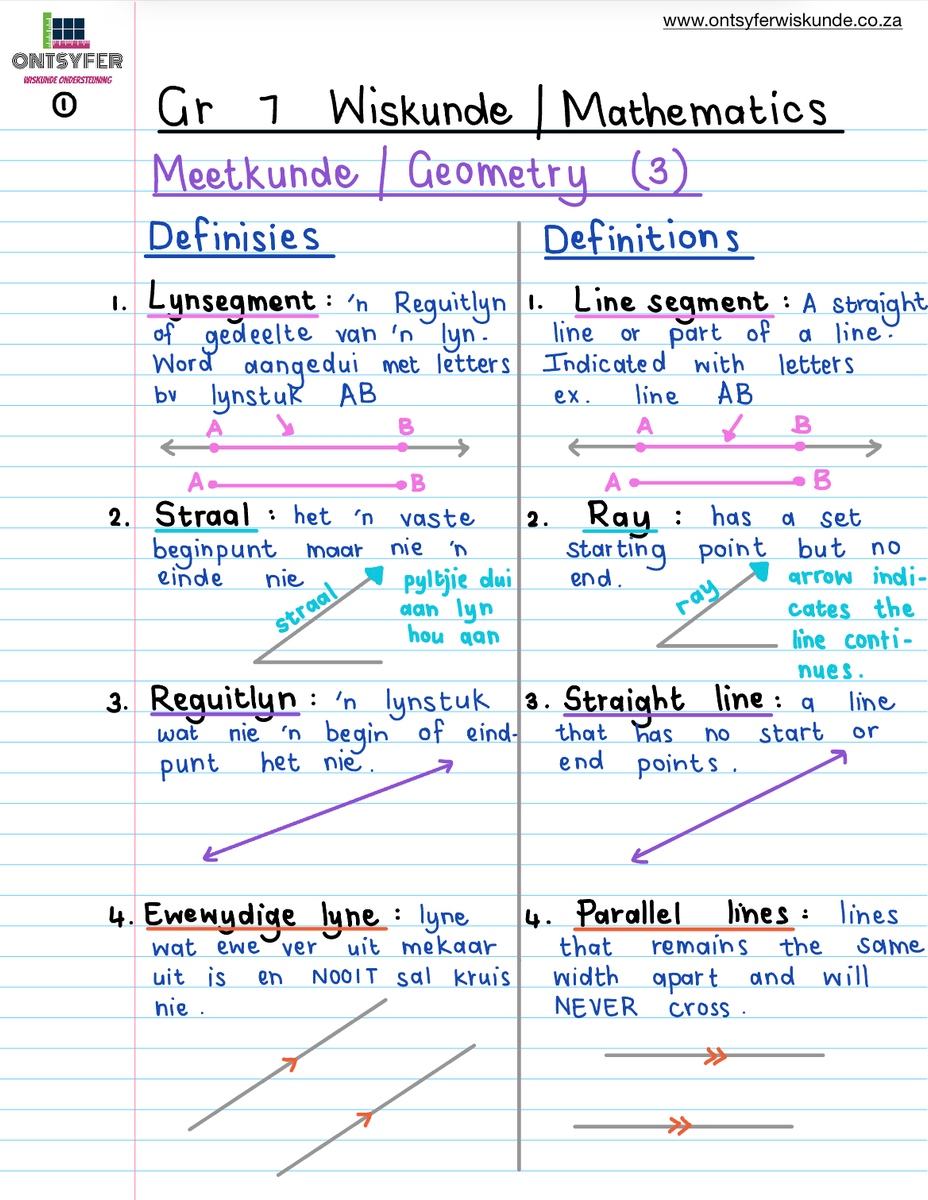 www.ontsyferwiskunde.co.za
ONTSYFER
WISKUNDE ONDERSTEUNING
1
Gr 7 Wiskunde | Mathematics
Meetkunde | Geometry (3)
Definisies
1. Lynsegment : 'n Reguitlyn
of gedeelte van 'n lyn.
Word aangedui met letters
bv lynstuk AB
A B
A B
2. Straal : het 'n vaste
beginpunt maar nie 'n
einde nie
straal
pyltjie dui
aan lyn
hou aan
3. Reguitlyn : 'n lynstuk
wat nie 'n begin of eind-
punt het nie.
4. Ewewydige lyne : lyne
wat ewe ver uit mekaar
uit is en NOOIT sal kruis
nie.
Definitions
1. Line segment : A straight
line or part of a line.
Indicated with letters
ex. line AB
A B
A B
2. Ray : has a set
starting point but no
end.
ray
arrow indi-
cates the
line conti-
nues.
3. Straight line : a line
that has no start or
end points.
4. Parallel lines : lines
that remains the same
width apart and will
NEVER cross.